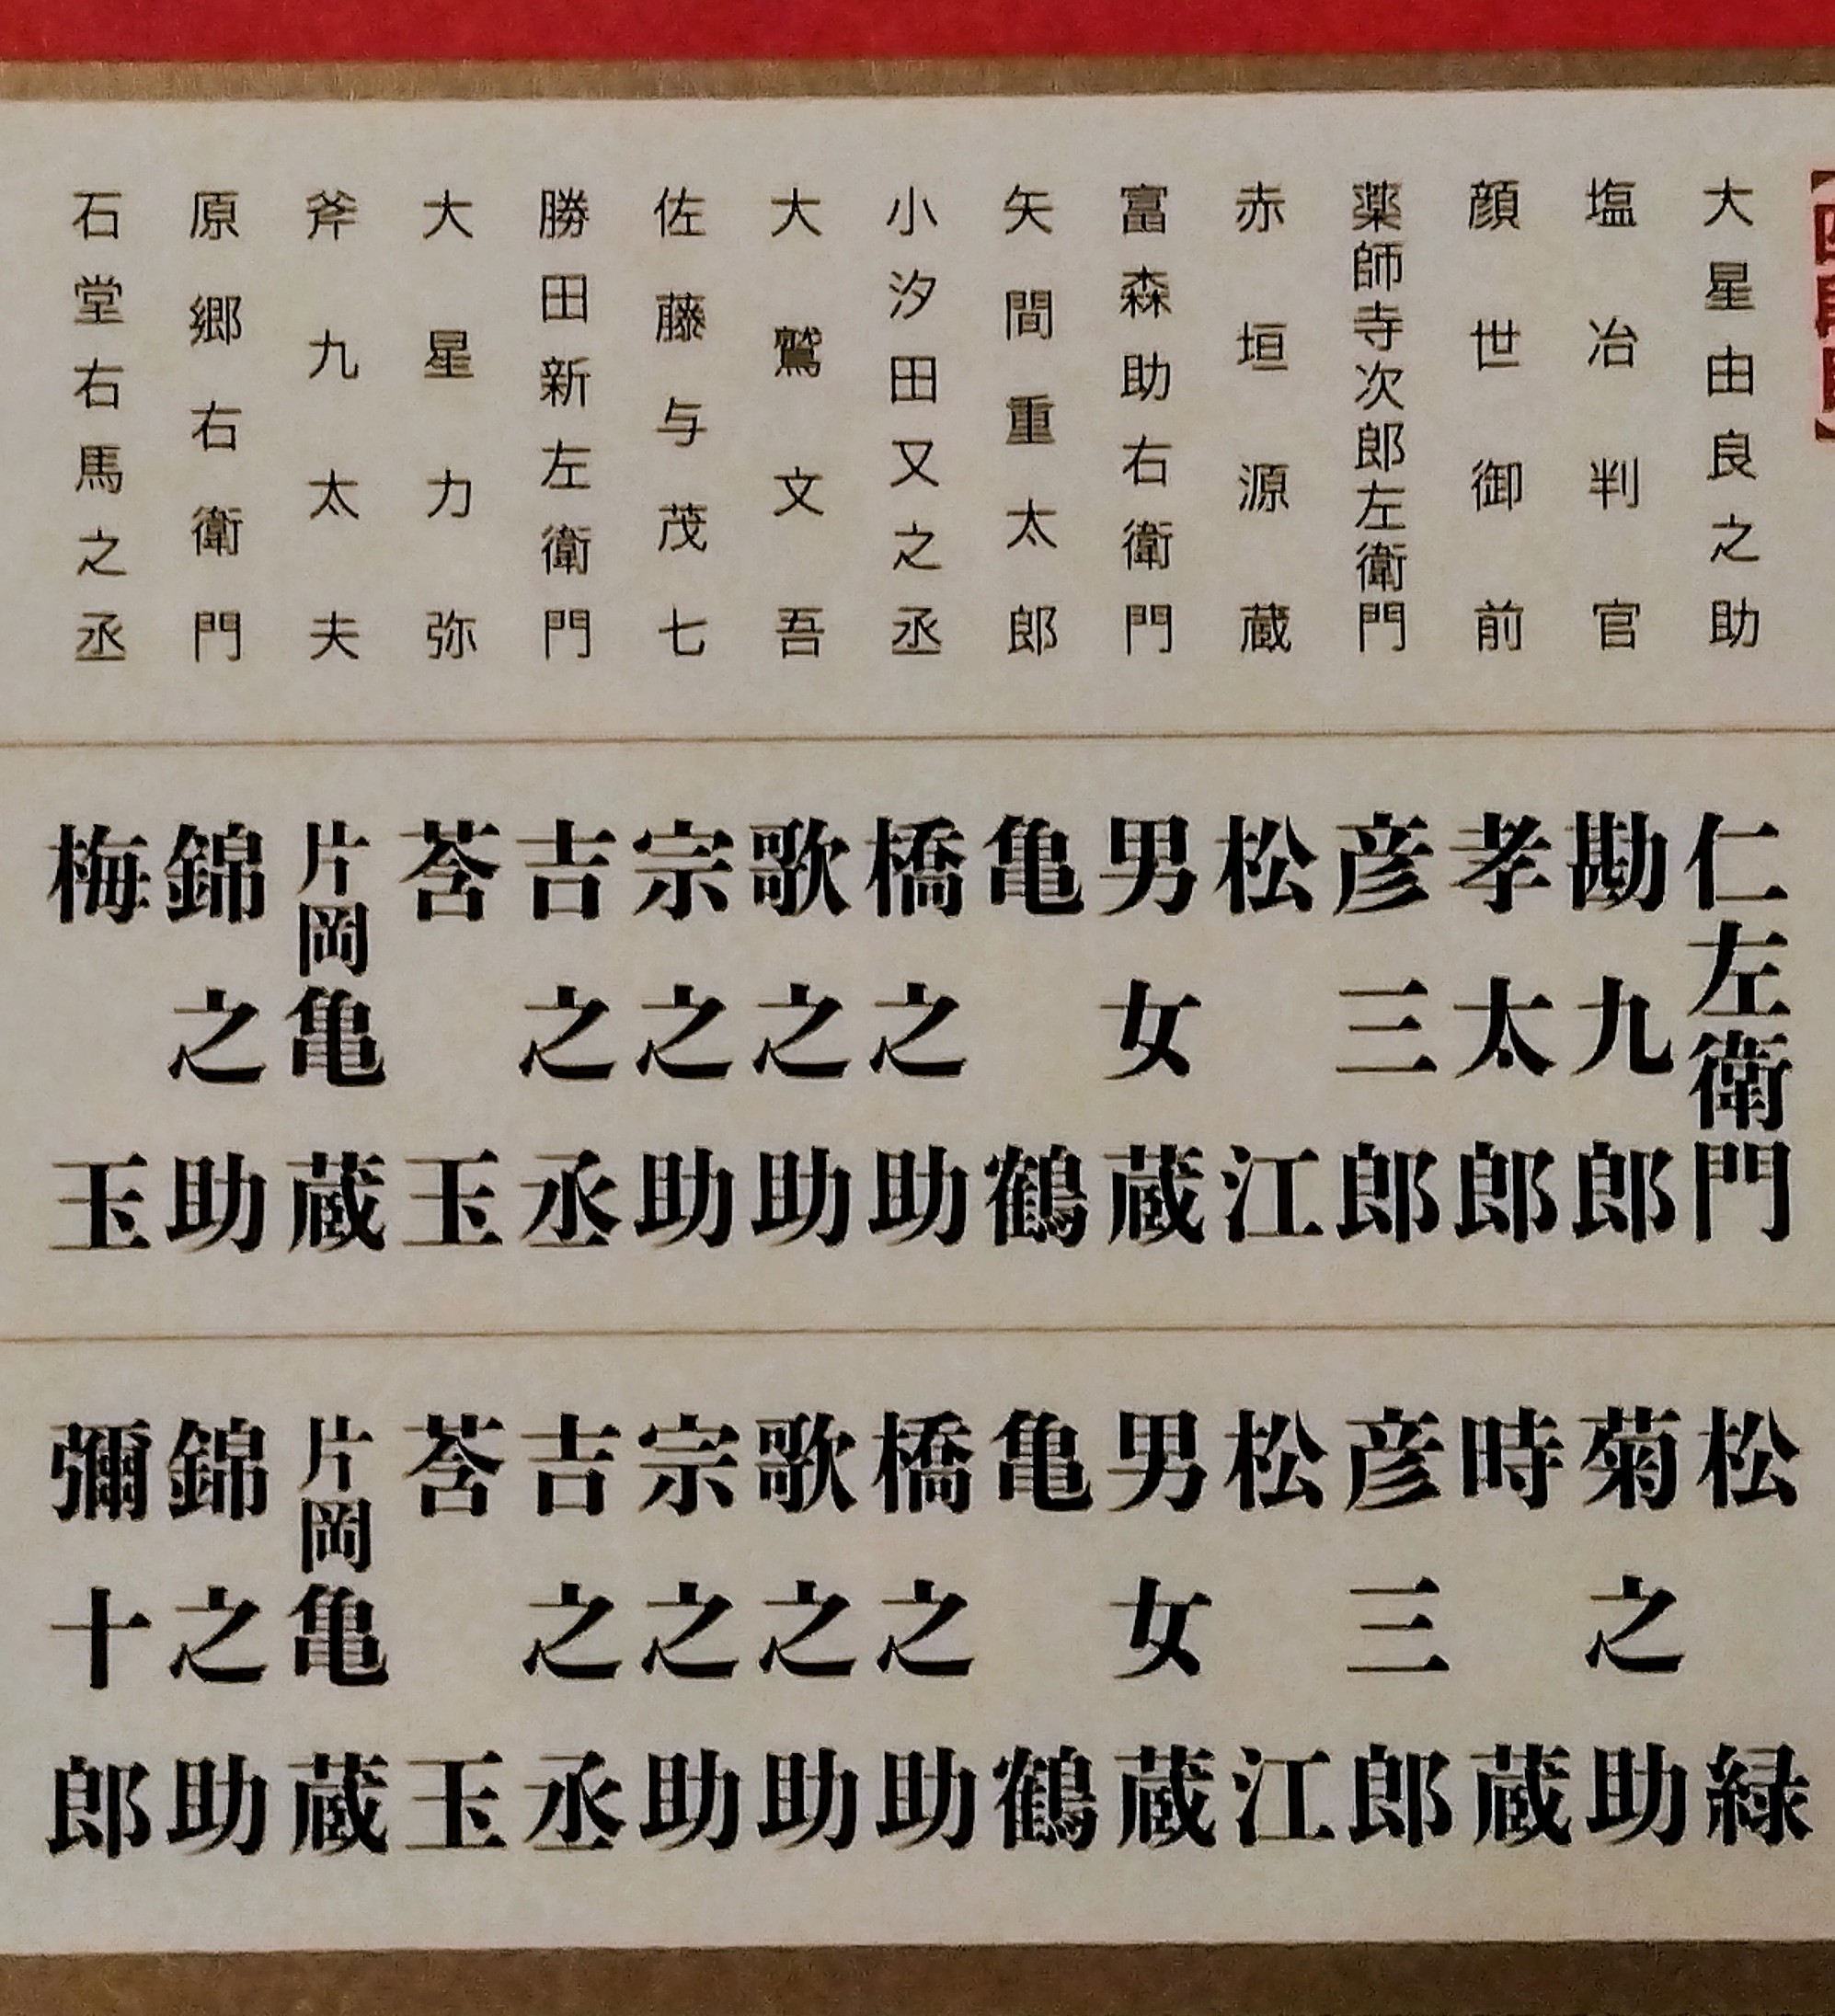 【四段目】
大星由良之助
塩冶判官
顔世御前
薬師寺次郎左衛門
赤垣源蔵
富森助右衛門
矢間重太郎
小汐田又之丞
大鷲文吾
佐藤与茂七
勝田新左衛門
大星力弥
斧九太夫
原郷右衛門
石堂右馬之丞
仁左衛門
勘九郎
孝太郎
彦三郎
松江
男女蔵
亀鶴
橋之助
歌之助
宗之助
吉之丞
莟玉
片岡亀蔵
錦之助
梅玉
松緑
菊之助
時蔵
彦三郎
松江
男女蔵
亀鶴
橋之助
歌之助
宗之助
吉之丞
莟玉
片岡亀蔵
錦之助
彌十郎